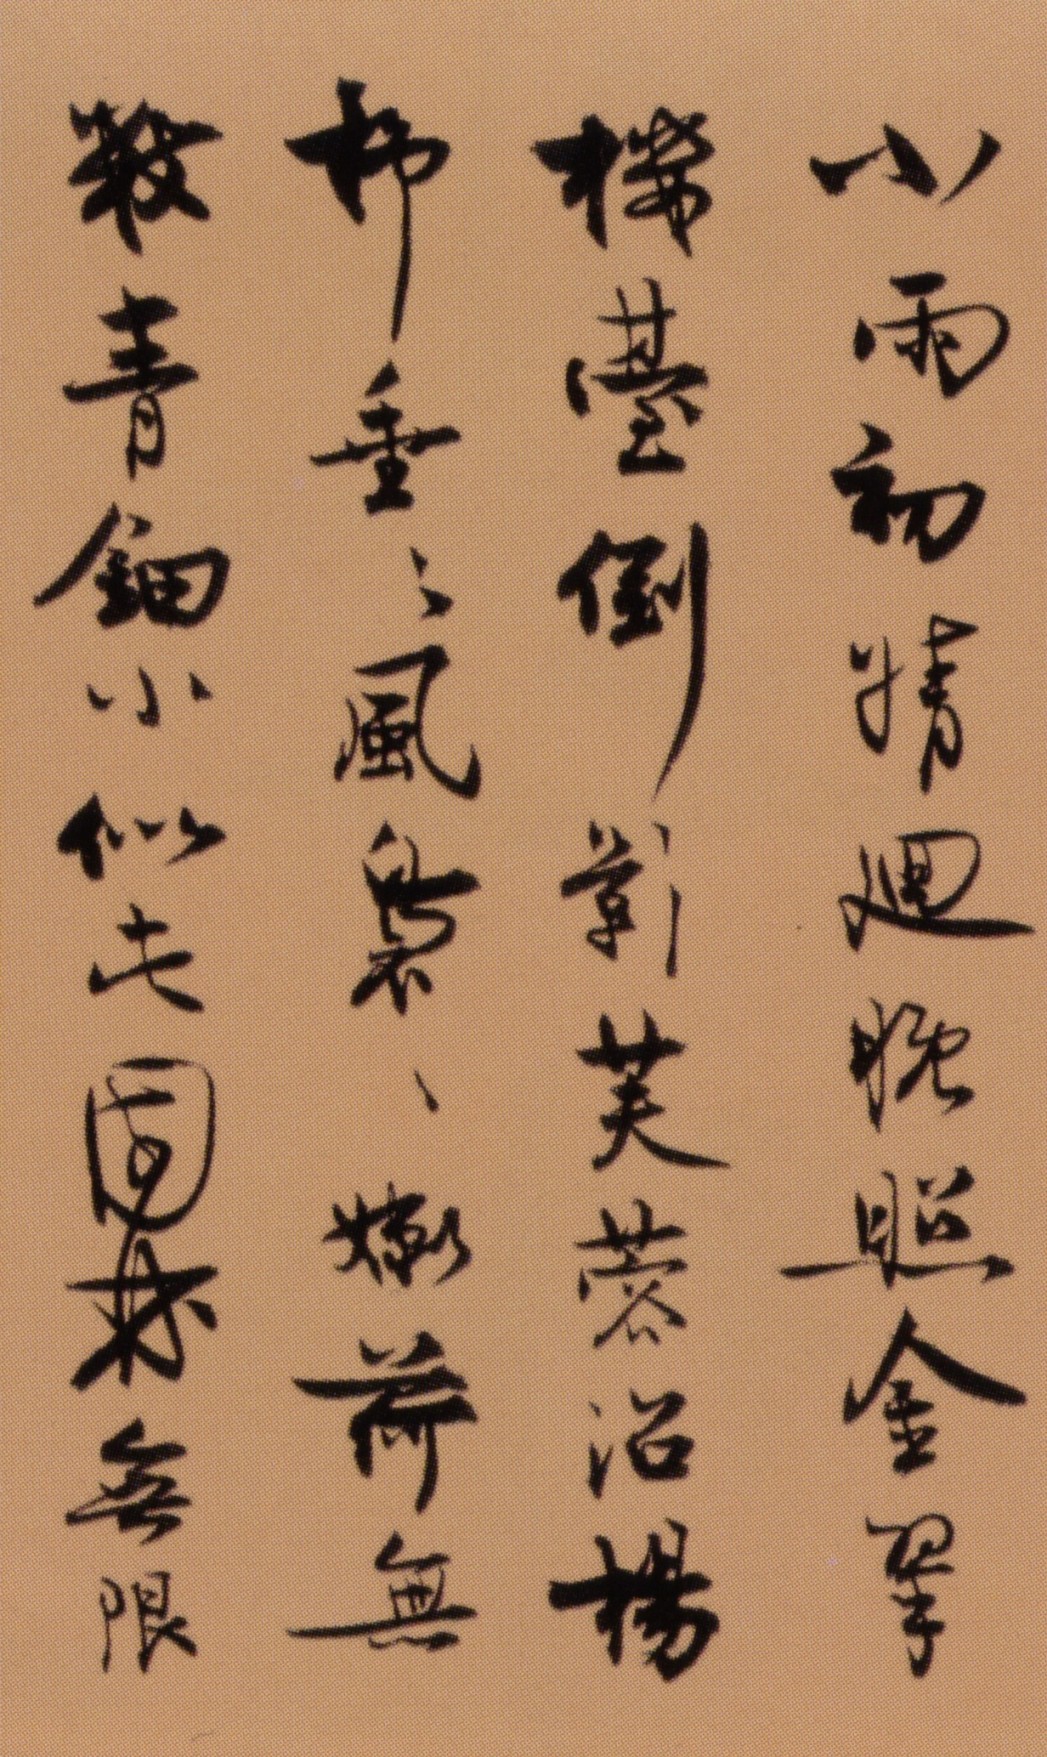 小雨初晴廻晚照金翠
樓臺倒影芙蓉沼楊
柳垂〻風裊〻嫩荷無
數青鈿小似此園林無限